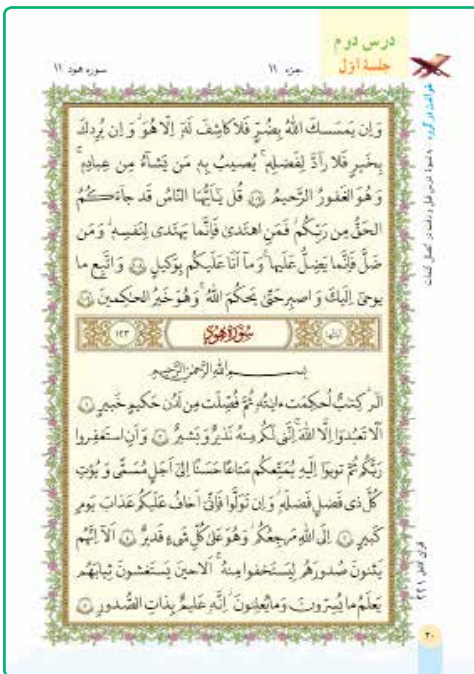 درس دوم
جلسهٔ اوّل
جزء ۱۱
سوره هود ۱۱
وَ اِن يَمسَسكَ اللّٰهُ بِضُرٍّ فَلا كاشِفَ لَهٗ اِلّا هُوَ وَ اِن يُرِدكَ
بِخَيرٍ فَلا رآدَّ لِفَضلِهٖ يُصيبُ بِهٖ مَن يَشآءُ مِن عِبادِهٖ
وَ هُوَ الغَفورُ الرَّحيمُ ۱۰۷ قُل يٰٓاَيُّهَا النّاسُ قَد جآءَكُمُ
الحَقُّ مِن رَبِّكُم فَمَنِ اهتَدىٰ فَاِنَّما يَهتَدى لِنَفسِهٖ وَ مَن
ضَلَّ فَاِنَّما يَضِلُّ عَلَيها وَ مآ اَنَا عَلَيكُم بِوَكيلٍ ۱۰۸ وَ اتَّبِع ما
يوحىٰٓ اِلَيكَ وَ اصبِر حَتّىٰ يَحكُمَ اللّٰهُ وَ هُوَ خَيرُ الحٰكِمينَ ۱۰۹
آياتها
سُورَةُ هُودٍ
۱۲۳
بِسمِ اللّٰهِ الرَّحمٰنِ الرَّحيمِ
الٓرٰ كِتٰبٌ اُحكِمَت ءايٰتُهٗ ثُمَّ فُصِّلَت مِن لَدُن حَكيمٍ خَبيرٍ ۱
اَلّا تَعبُدوٓا اِلَّا اللّٰهَ اِنَّنى لَكُم مِنهُ نَذيرٌ وَ بَشيرٌ ۲ وَ اَنِ استَغفِروا
رَبَّكُم ثُمَّ توبوٓا اِلَيهِ يُمَتِّعكُم مَتاعًا حَسَنًا اِلىٰٓ اَجَلٍ مُسَمًّى وَ يُؤتِ
كُلَّ ذى فَضلٍ فَضلَهٗ وَ اِن تَوَلَّوا فَاِنّىٓ اَخافُ عَلَيكُم عَذابَ يَومٍ
كَبيرٍ ۳ اِلَى اللّٰهِ مَرجِعُكُم وَ هُوَ عَلىٰ كُلِّ شَىءٍ قَديرٌ ۴ اَلآ اِنَّهُم
يَثنونَ صُدورَهُم لِيَستَخفوا مِنهُ اَلا حينَ يَستَغشونَ ثيابَهُم
يَعلَمُ ما يُسِرّونَ وَ ما يُعلِنونَ اِنَّهٗ عَليمٌ بِذاتِ الصُّدورِ ۵
خواندن در گروه
به شیوهٔ درس قبل و دقت در اتصال کلمات
قرآن کامل ۲۲۱
۲۰